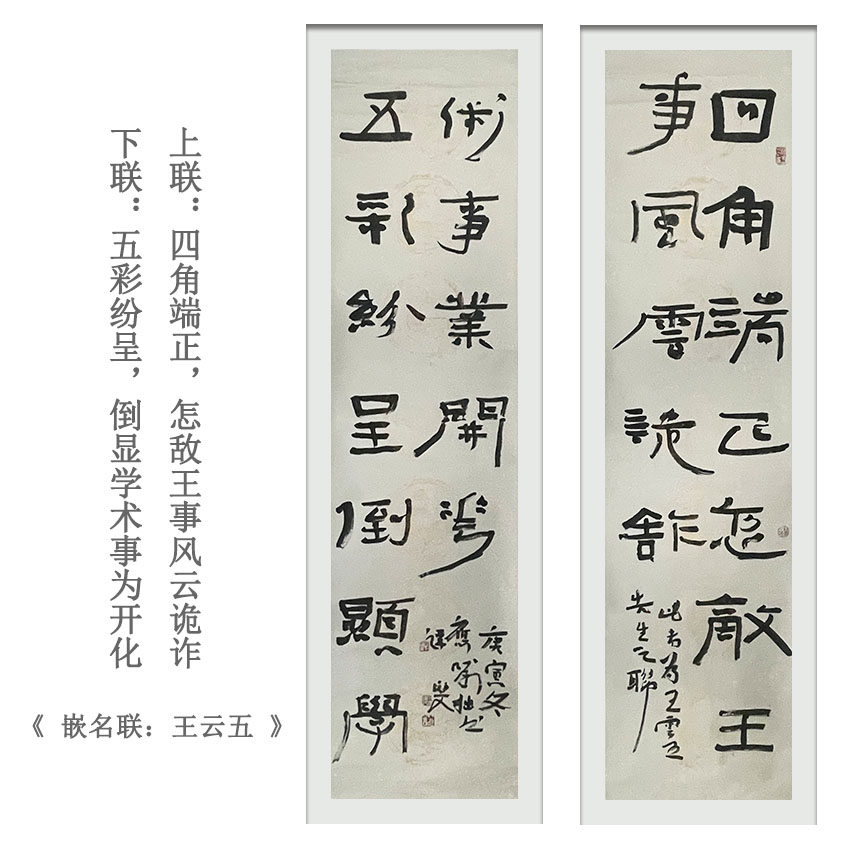 上联：四角端正，怎敌王事风云诡诈
下联：五彩纷呈，倒显学术事为开化
《 嵌名联：王云五 》
四角端正怎敵王
事風雲詭詐
此 為王雲五
先生之聯
五彩紛呈倒顯學
術事業開花
庚寅冬